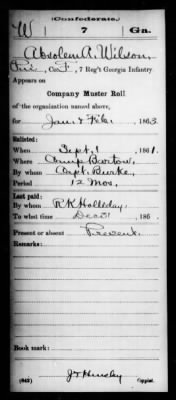 (Confederate.)
W 7 Ga.
Absolem A. Wilson,
Pri, Co. F, 7 Reg't Georgia Infantry
Appears on
Company Muster Roll
of the organization named above,
for Jan & Feb, 1863.
Enlisted:
When Sept 1, 1861.
Where Camp Bartow.
By whom Capt. Burke,
Period 12 Mos.
Last paid:
By whom R K Holliday.
To what time Dec 31, 186
Present or absent Present.
Remarks:
Book mark:
J T Hensley
(642) Copyist.